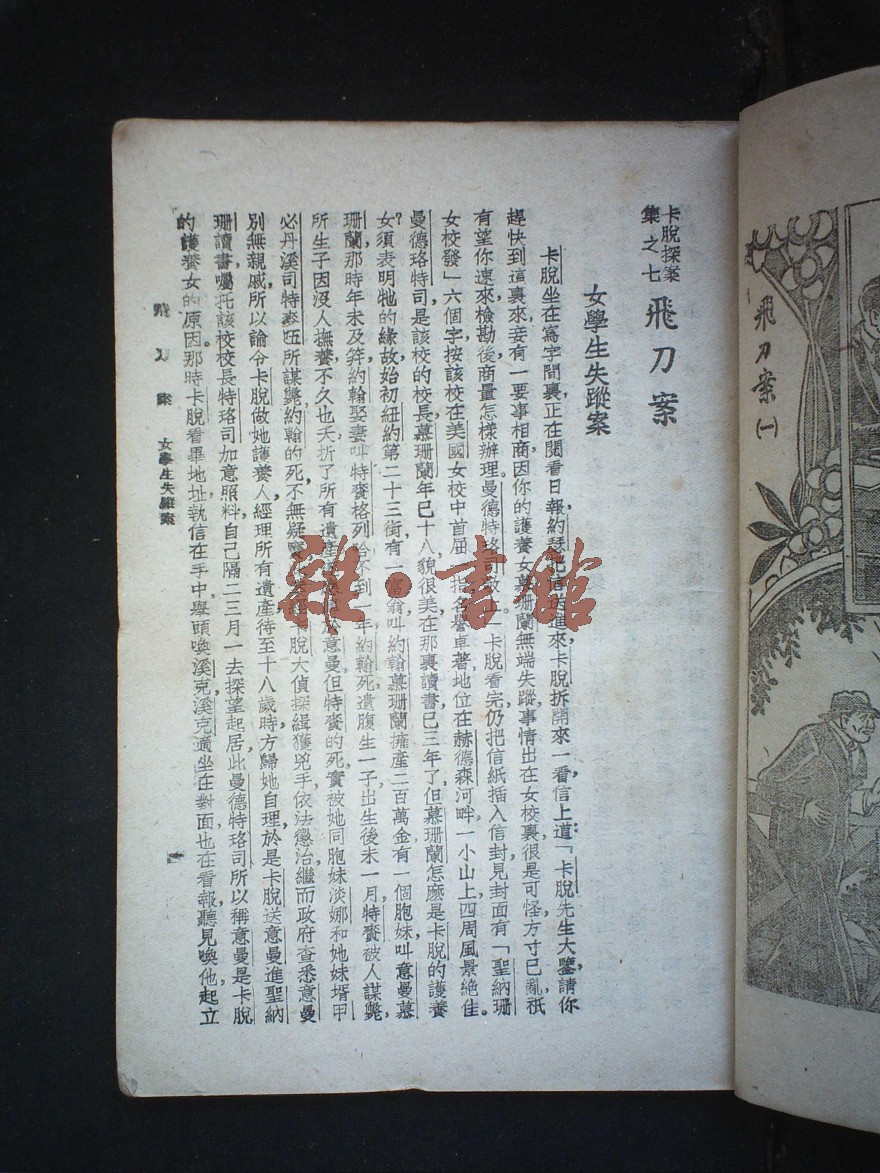 飛刀案(一)
卡脫探案
集之七
飛刀案
女學生失蹤案
卡脫坐在寫字間裏正在閱看日報約瑟把信送進來卡脫拆開來一看信上道:「卡脫先生大鑒請你
趕快到這裏來妾有一要事相商因你的護養女慕珊蘭無端失蹤事情出在女校裏很是可怪方寸已亂祇
有望你速來檢勘後商量怎樣辦理曼德特珞司敬上」卡脫看完仍把信紙插入信封見封面有「聖納珊
女校發」六個字按該校在美國女校中首屈一指名譽卓著地位在赫德森河畔一小山上四周風景絕佳。
曼德珞特司是該校的校長慕珊蘭年已十八貌很美在那裏讀書已三年了但慕珊蘭怎麼是卡脫的護養
女須表明牠的緣故始初紐約第二十三街有一富翁叫約翰慕珊蘭擁產二百萬金有一個胞妹叫意曼慕
珊蘭那時年未及笄約翰娶妻叫特賚格列 不到一年約翰死遺腹生一子出生後未一月特賚被人謀斃,
所生子因沒人撫養不久也夭折了所有遺產 於意曼但特賚的死實被她同胞妹淡娜和她妹壻甲
必丹溪司特麥伍所謀斃約翰的死不無疑 卡脫大偵探緝獲兇手依法懲治繼而政府查悉意曼
別無親戚所以諭令卡脫做她護養人經理所有遺產待至十八歲時方歸她自理於是卡脫送意曼進聖納
珊讀書囑托該校校長特珞司加意照料自己隔二三月一去探望起居此曼德特珞司所以稱意曼是卡脫
的護養女的原因那時卡脫看畢地址執信在手中舉頭喚溪克溪克適坐在對面也在看報聽見喚他起立
飛刀案 女學生失蹤案
一
雜·書館